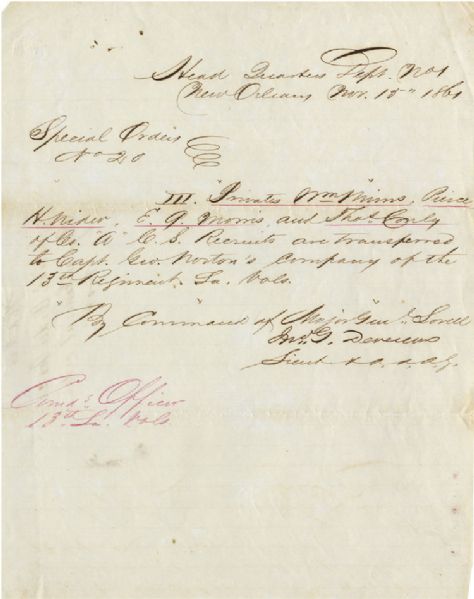 Head Quarters Dept. No 1
New Orleans Nov. 15th 1861
Special Orders
No 20
III. Privates Wm Mims, Pierce
H. E. G. Morris, and Thos. Conly
of Co. "A" C. S. Recruits are transferred
to Capt. Geo. Norton's Company of the
13th Regiment, La. Vols.
"By Command of Major Genl. Lovell
Jno. G. Devereux
Lieut & A. A. A. G.
Comdg Officer
13th La. Vols